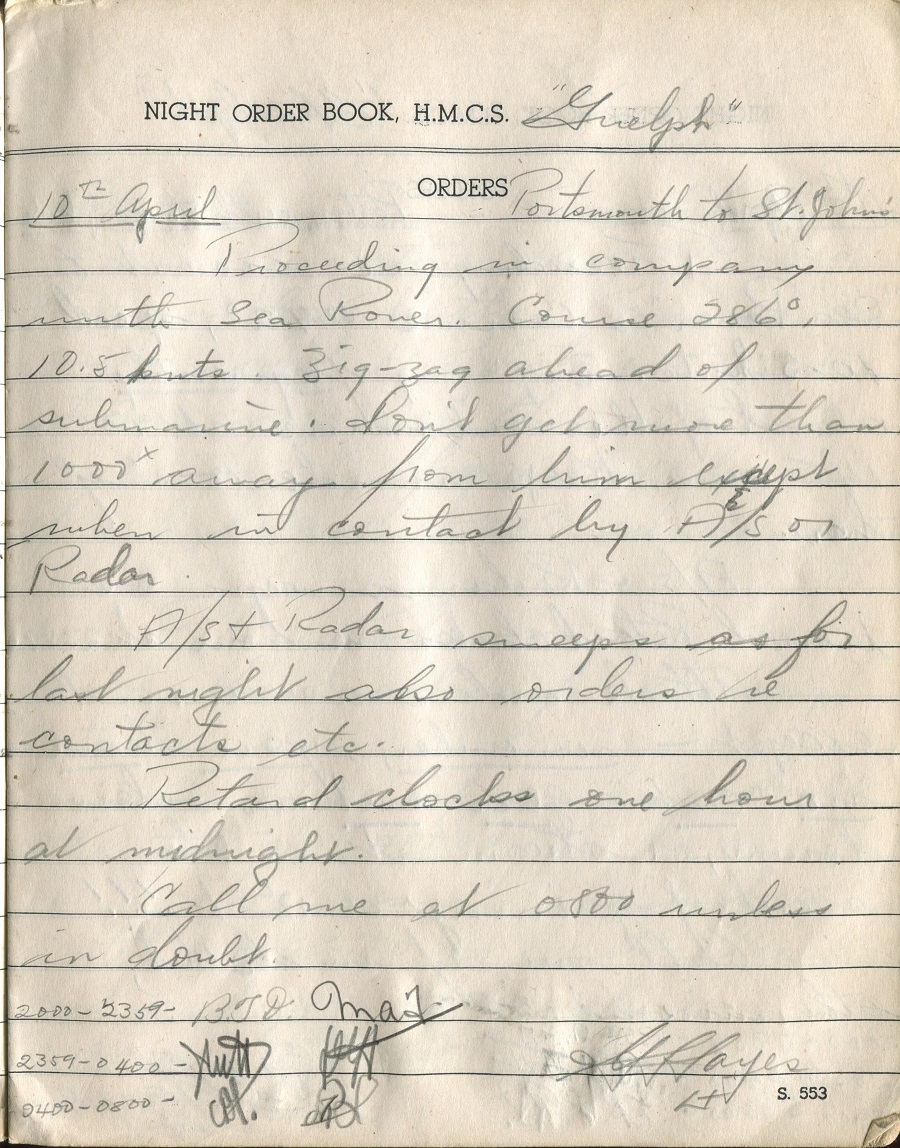 NIGHT ORDER BOOK, H.M.C.S. "Guelph"
ORDERS
10TH April Portsmouth to St. John's
Proceeding in company
with Sea Rover. Course 286°,
10.5 knts. Zig-zag ahead of
submarine. Don't get more than
1000x away from him except
when in contact by A/S or
Radar.
A/S + Radar sweeps as for
last night also orders re
contacts etc.
Retard clocks one hour
at midnight.
Call me at 0800 unless
in doubt.
2000-2359-
2359-0400-
Hayes
0400-0800-
Lt
S. 553